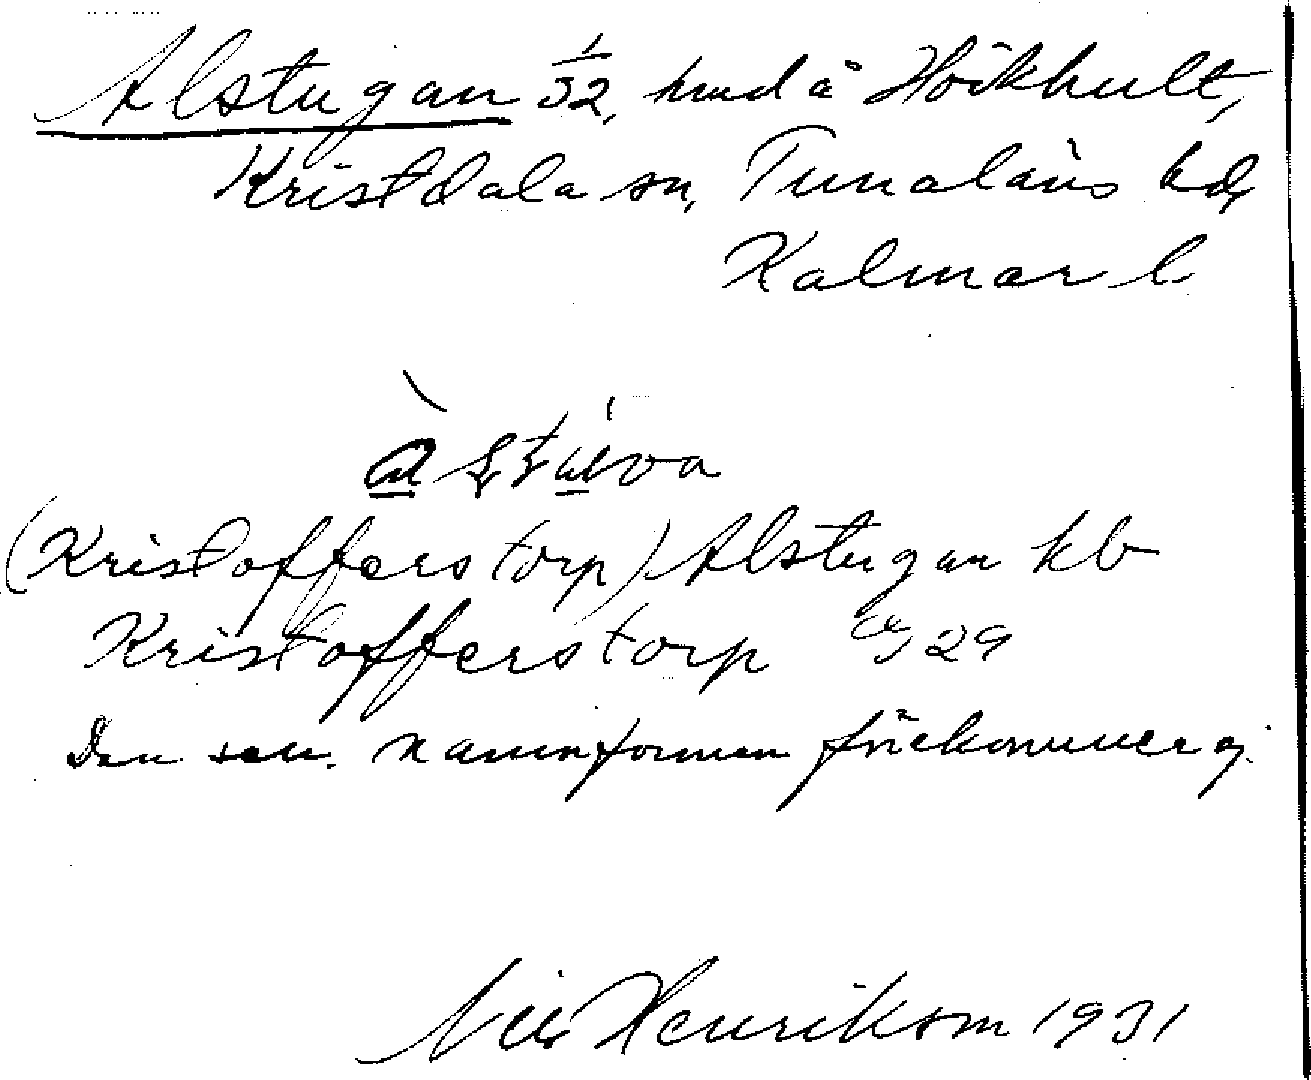 Alstugan 1/32, hmd å Hökhult,
Kristdala sn, Tunaläns hd,
Kalmar l.
(Kristofferstorp) Alstugan kb
Kristofferstorp 29
Den sen. namnformen förekommer ej.
Nils Henrikson 1931